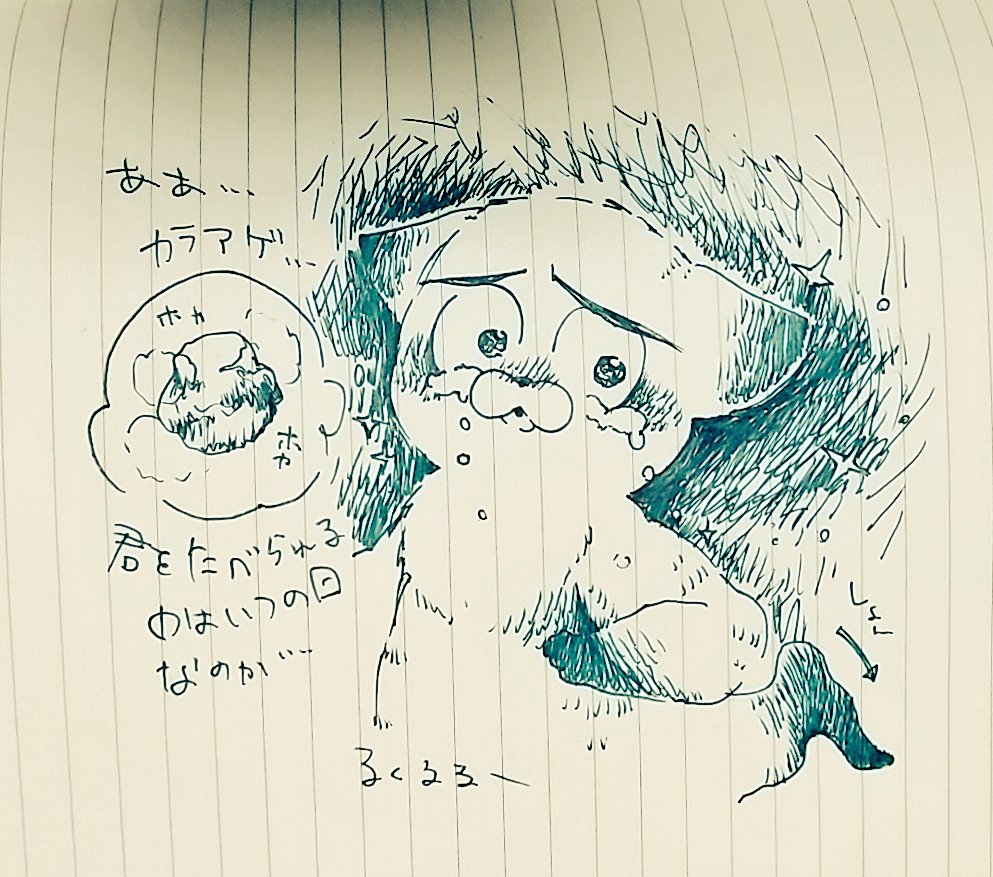 ああ…
カラアゲ…
ホカ
ホカ
君をたべられる
のはいつの日
なのか…
しょん
るくるるー